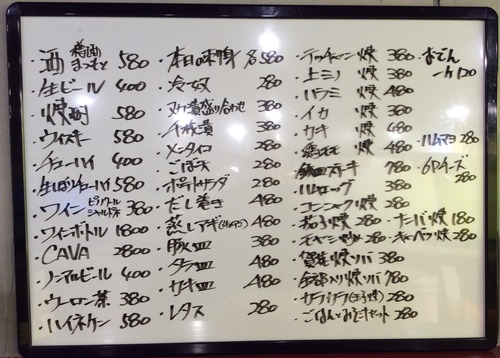 ・酒 樽酒 まつもと 580
・生ビール 400
・焼酎 580
・ウィスキー 580
・チューハイ 400
・生しぼりチューハイ 580
・ワイン ピノノワール シャルドネ 380
・ワインボトル 1800
・CAVA 2800
・ノンアルビール 400
・ウーロン茶 380
・ハイネケン 580
・本日の味 各580
・冷奴 280
・ヌカ漬盛り合わせ 380
・漬 380
・メンタイコ 280
・ごぼ天 280
・ポテトサラダ 280
・だし巻き 480
・蒸しアサリ 480
・豚皿 380
・タラ皿 480
・カキ皿 480
・レタス 280
・テッチャン焼 380
・上ミノ焼 380
・ハラミ焼 480
・イカ焼 380
・カキ焼 480
・焼 480
・ステーキ 780
・ハムエッグ 380
・コンニャク焼 280
・茄子焼 280
・モヤシ炒め 280
・焼ソバ 380
・全部入り焼ソバ 780
・280
・ごはんとみそ汁セット 280
・おでん 一ケ120
・ハムマヨ 280
・6Pチーズ 280
・ナンバ焼 180
・キャベツ焼 280